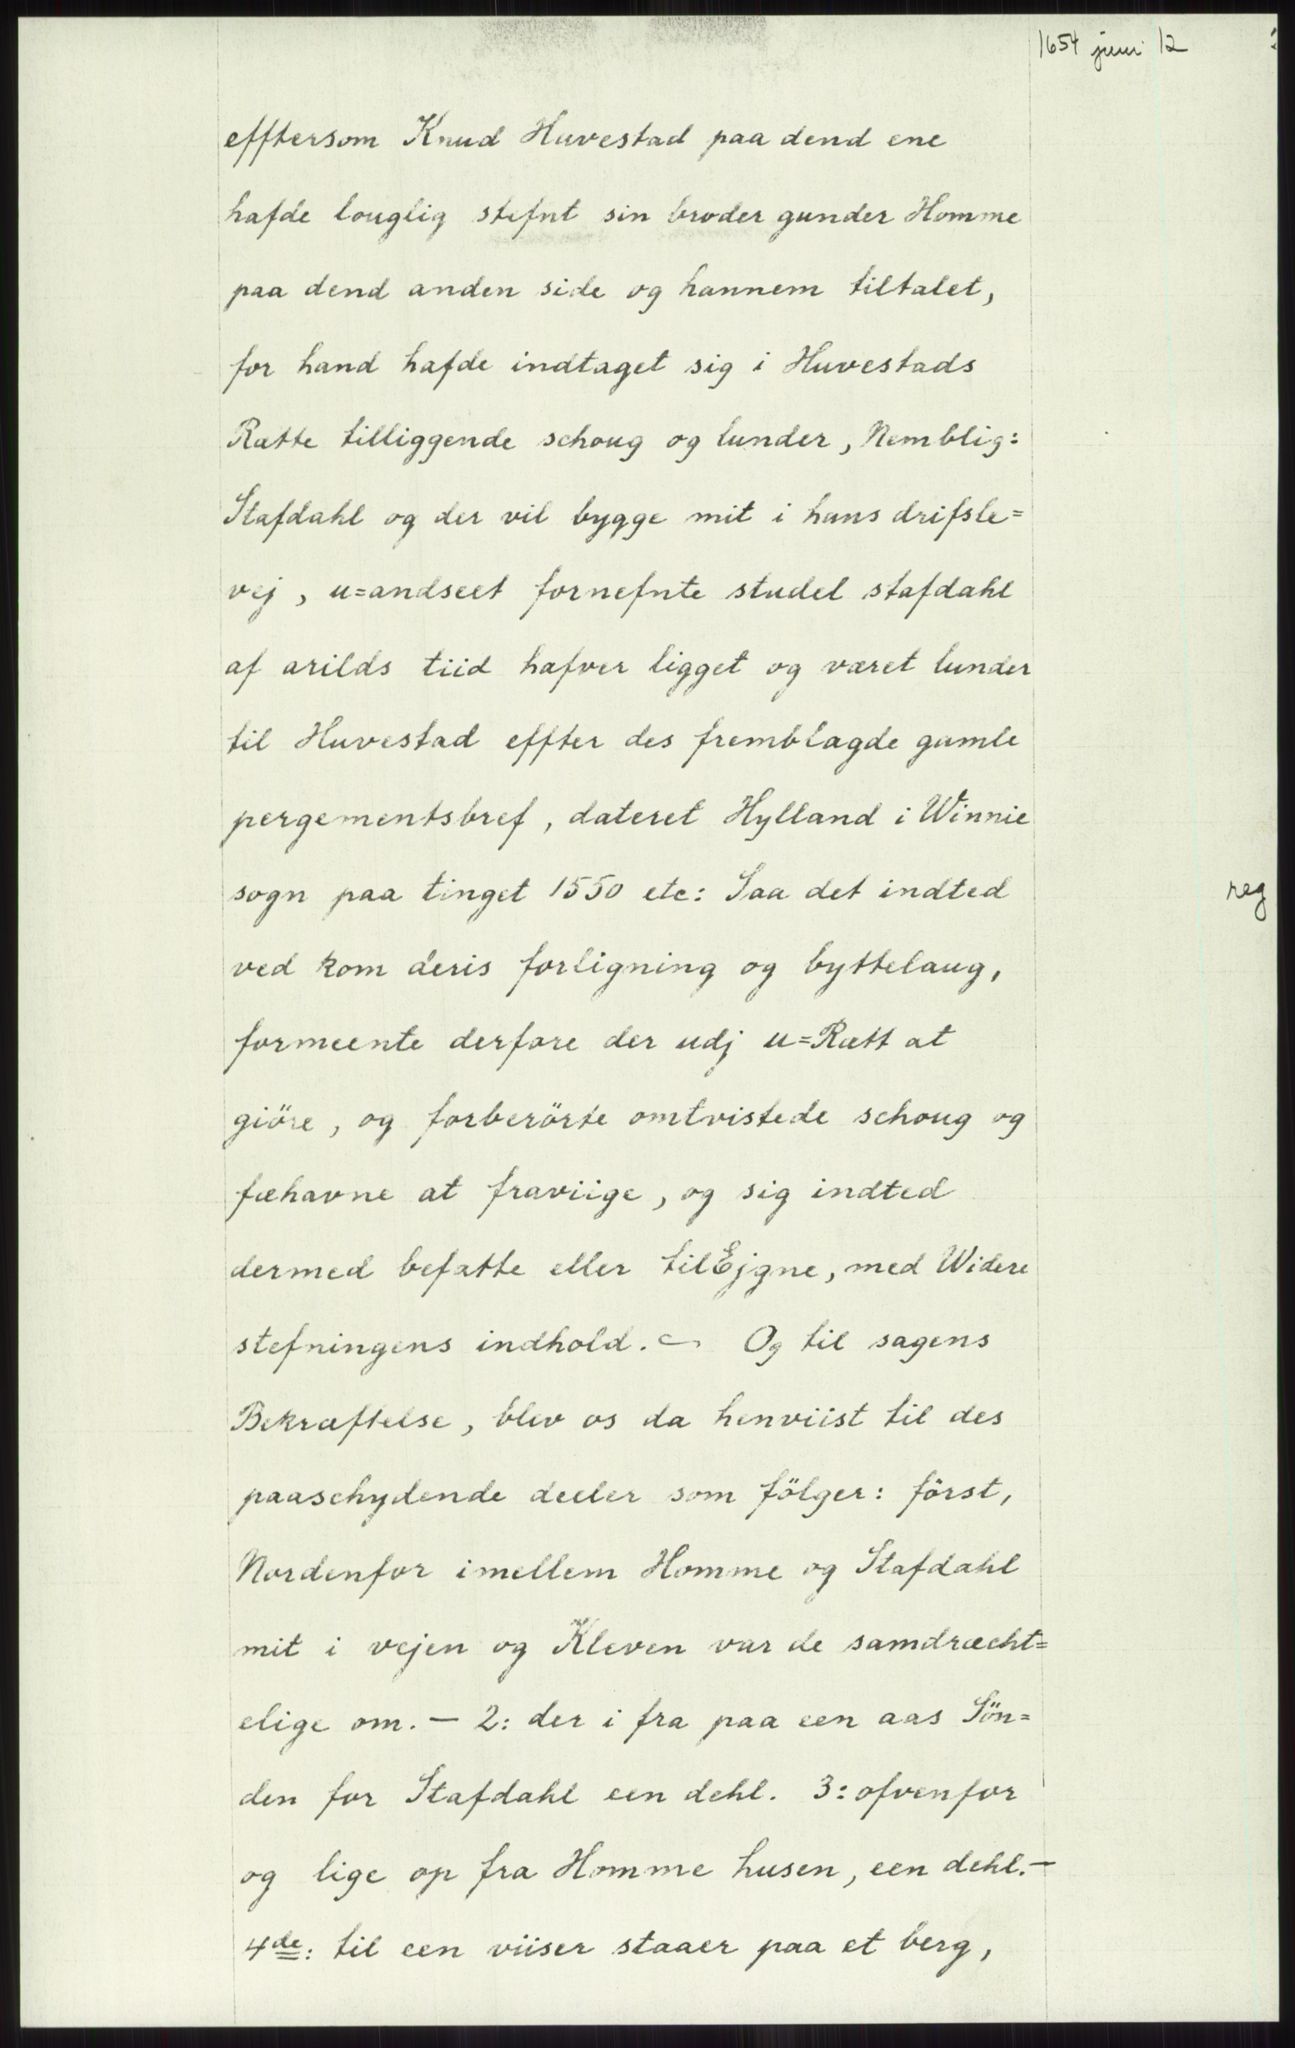 1654 juni 12
efftersom Knud Huvestad paa dend ene
hafde louglig stefnt sin broder gunder Homme
paa dend anden side og hannem tiltalet,
for hand hafde indtaget sig i Huvestads
Rætte tilliggende schoug og lunder, Nemblig:
Stafdahl og der vil bygge mit i hans drifsle=
vej, u=andseet fornefnte studel stafdahl
af arilds tiid hafver ligget og været lunder
til Huvestad effter des fremblagde gamle
pergementsbref, dateret Hylland i Winnie
sogn paa tinget 1550 etc: Saa det indted
reg
ved kom deris forligning og byttelaug,
formeente derfore der udj u=Rætt at
giöre, og forberörte omtvistede schoug og
fæhavne at fraviige, og sig indted
dermed befatte eller tilEjgne, med Widere
stefningens indhold. Og til sagens
Bekræftelse, blev os da henviist til des
paaschydende deeler som fölger: först,
Nordenfor imellem Homme og Stafdahl
mit i vejen og Kleven var de samdræcht=
elige om. — 2: der i fra paa een aas Sön=
den for Stafdahl een dehl. 3: ofvenfor
og lige op fra Homme husen, een dehl. —
4de: til een viiser staaer paa et berg,